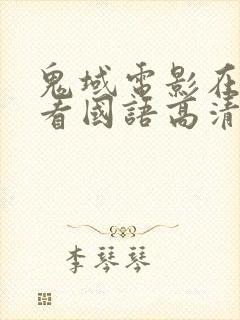 鬼域電影在
看國語高清
李琴琴